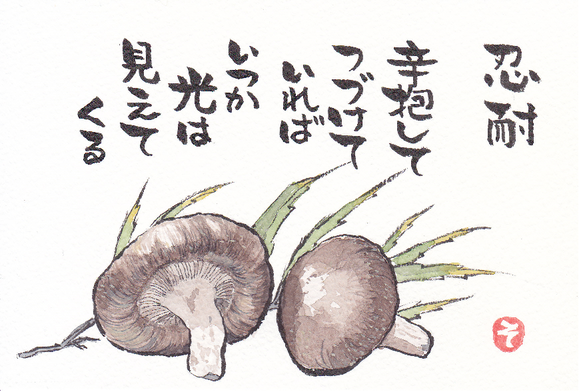 忍耐
辛抱して
つづけて
いれば
いつか
光は
見えて
くる
そ